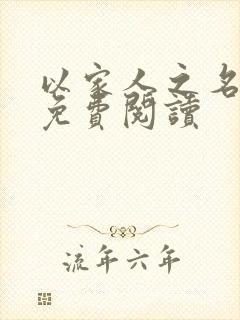 以家人之名
免費閱讀
流年六年